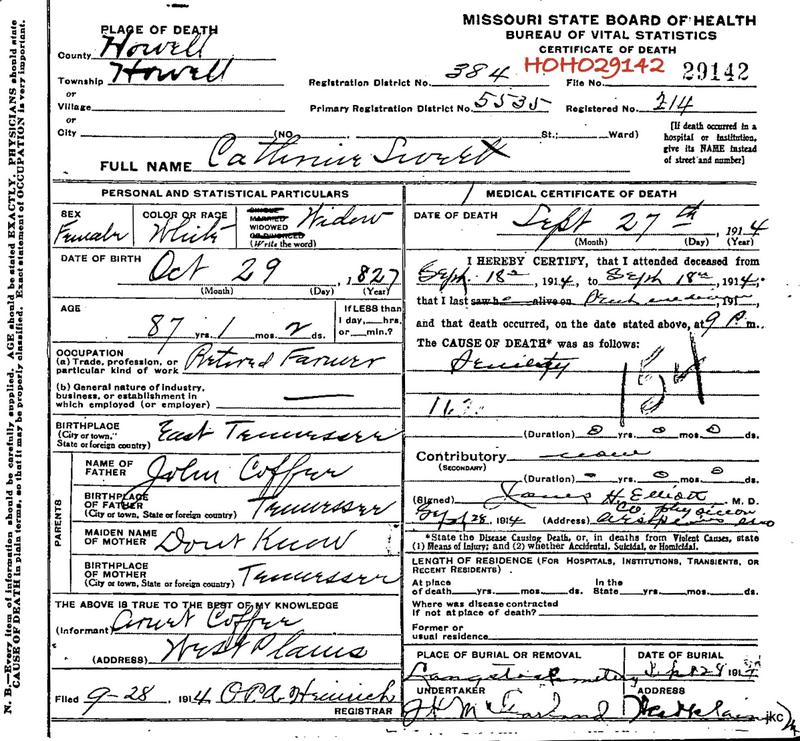 MISSOURI STATE BOARD OF HEALTH
BUREAU OF VITAL STATISTICS
CERTIFICATE OF DEATH
HOHO29142 29142
PLACE OF DEATH
County Howell
Township Howell
or
Village
or
City (NO. St.; Ward)
Registration District No. 384 File No.
Primary Registration District No. 5535 Registered No. 214
[If death occurred in a hospital or institution, give its NAME instead of street and number]
FULL NAME Catherine Sweet
PERSONAL AND STATISTICAL PARTICULARS
SEX Female
COLOR OR RACE White
SINGLE MARRIED WIDOWED OR DIVORCED (Write the word) Widow
DATE OF BIRTH Oct 29, 1827
(Month) (Day) (Year)
AGE 87 yrs. 1 mos. 2 ds.
If LESS than 1 day,___hrs. or___min.?
OCCUPATION
(a) Trade, profession, or particular kind of work Retired Farmer
(b) General nature of industry, business, or establishment in which employed (or employer)
BIRTHPLACE (City or town, State or foreign country) East Tennessee
PARENTS
NAME OF FATHER John Coffer
BIRTHPLACE OF FATHER (City or town, State or foreign country) Tennessee
MAIDEN NAME OF MOTHER Dont Know
BIRTHPLACE OF MOTHER (City or town, State or foreign country) Tennessee
THE ABOVE IS TRUE TO THE BEST OF MY KNOWLEDGE
(Informant) Coffer
(ADDRESS) West Plains
Filed 9-28, 1914 Heinrich
REGISTRAR
MEDICAL CERTIFICATE OF DEATH
DATE OF DEATH Sept 27th, 1914
(Month) (Day) (Year)
I HEREBY CERTIFY, that I attended deceased from
Sept. 18th, 1914, to Sept 18th, 1914,
that I last saw h alive on , 191
and that death occurred, on the date stated above, at 9 P m.
The CAUSE OF DEATH* was as follows:
Senility
154
(Duration) 0 yrs. 0 mos. 0 ds.
Contributory none
(SECONDARY)
(Duration) - yrs. 0 mos. 0 ds.
(Signed) James H Elliott M. D.
Co. Physician
Sept 28, 1914 (Address) West Plains Mo
*State the Disease Causing Death, or, in deaths from Violent Causes, state
(1) Means of Injury; and (2) whether Accidental, Suicidal, or Homicidal.
LENGTH OF RESIDENCE (FOR HOSPITALS, INSTITUTIONS, TRANSIENTS, OR RECENT RESIDENTS).
At place of death___yrs.___mos.___ds. In the State___yrs.___mos.___ds.
Where was disease contracted if not at place of death?
Former or usual residence
PLACE OF BURIAL OR REMOVAL DATE OF BURIAL
Cemetery Sept 28 1914
UNDERTAKER ADDRESS
McFarland West Plains
jkc
N. B.—Every item of information should be carefully supplied. AGE should be stated EXACTLY. PHYSICIANS should state
CAUSE OF DEATH in plain terms, so that it may be properly classified. Exact statement of OCCUPATION is very important.